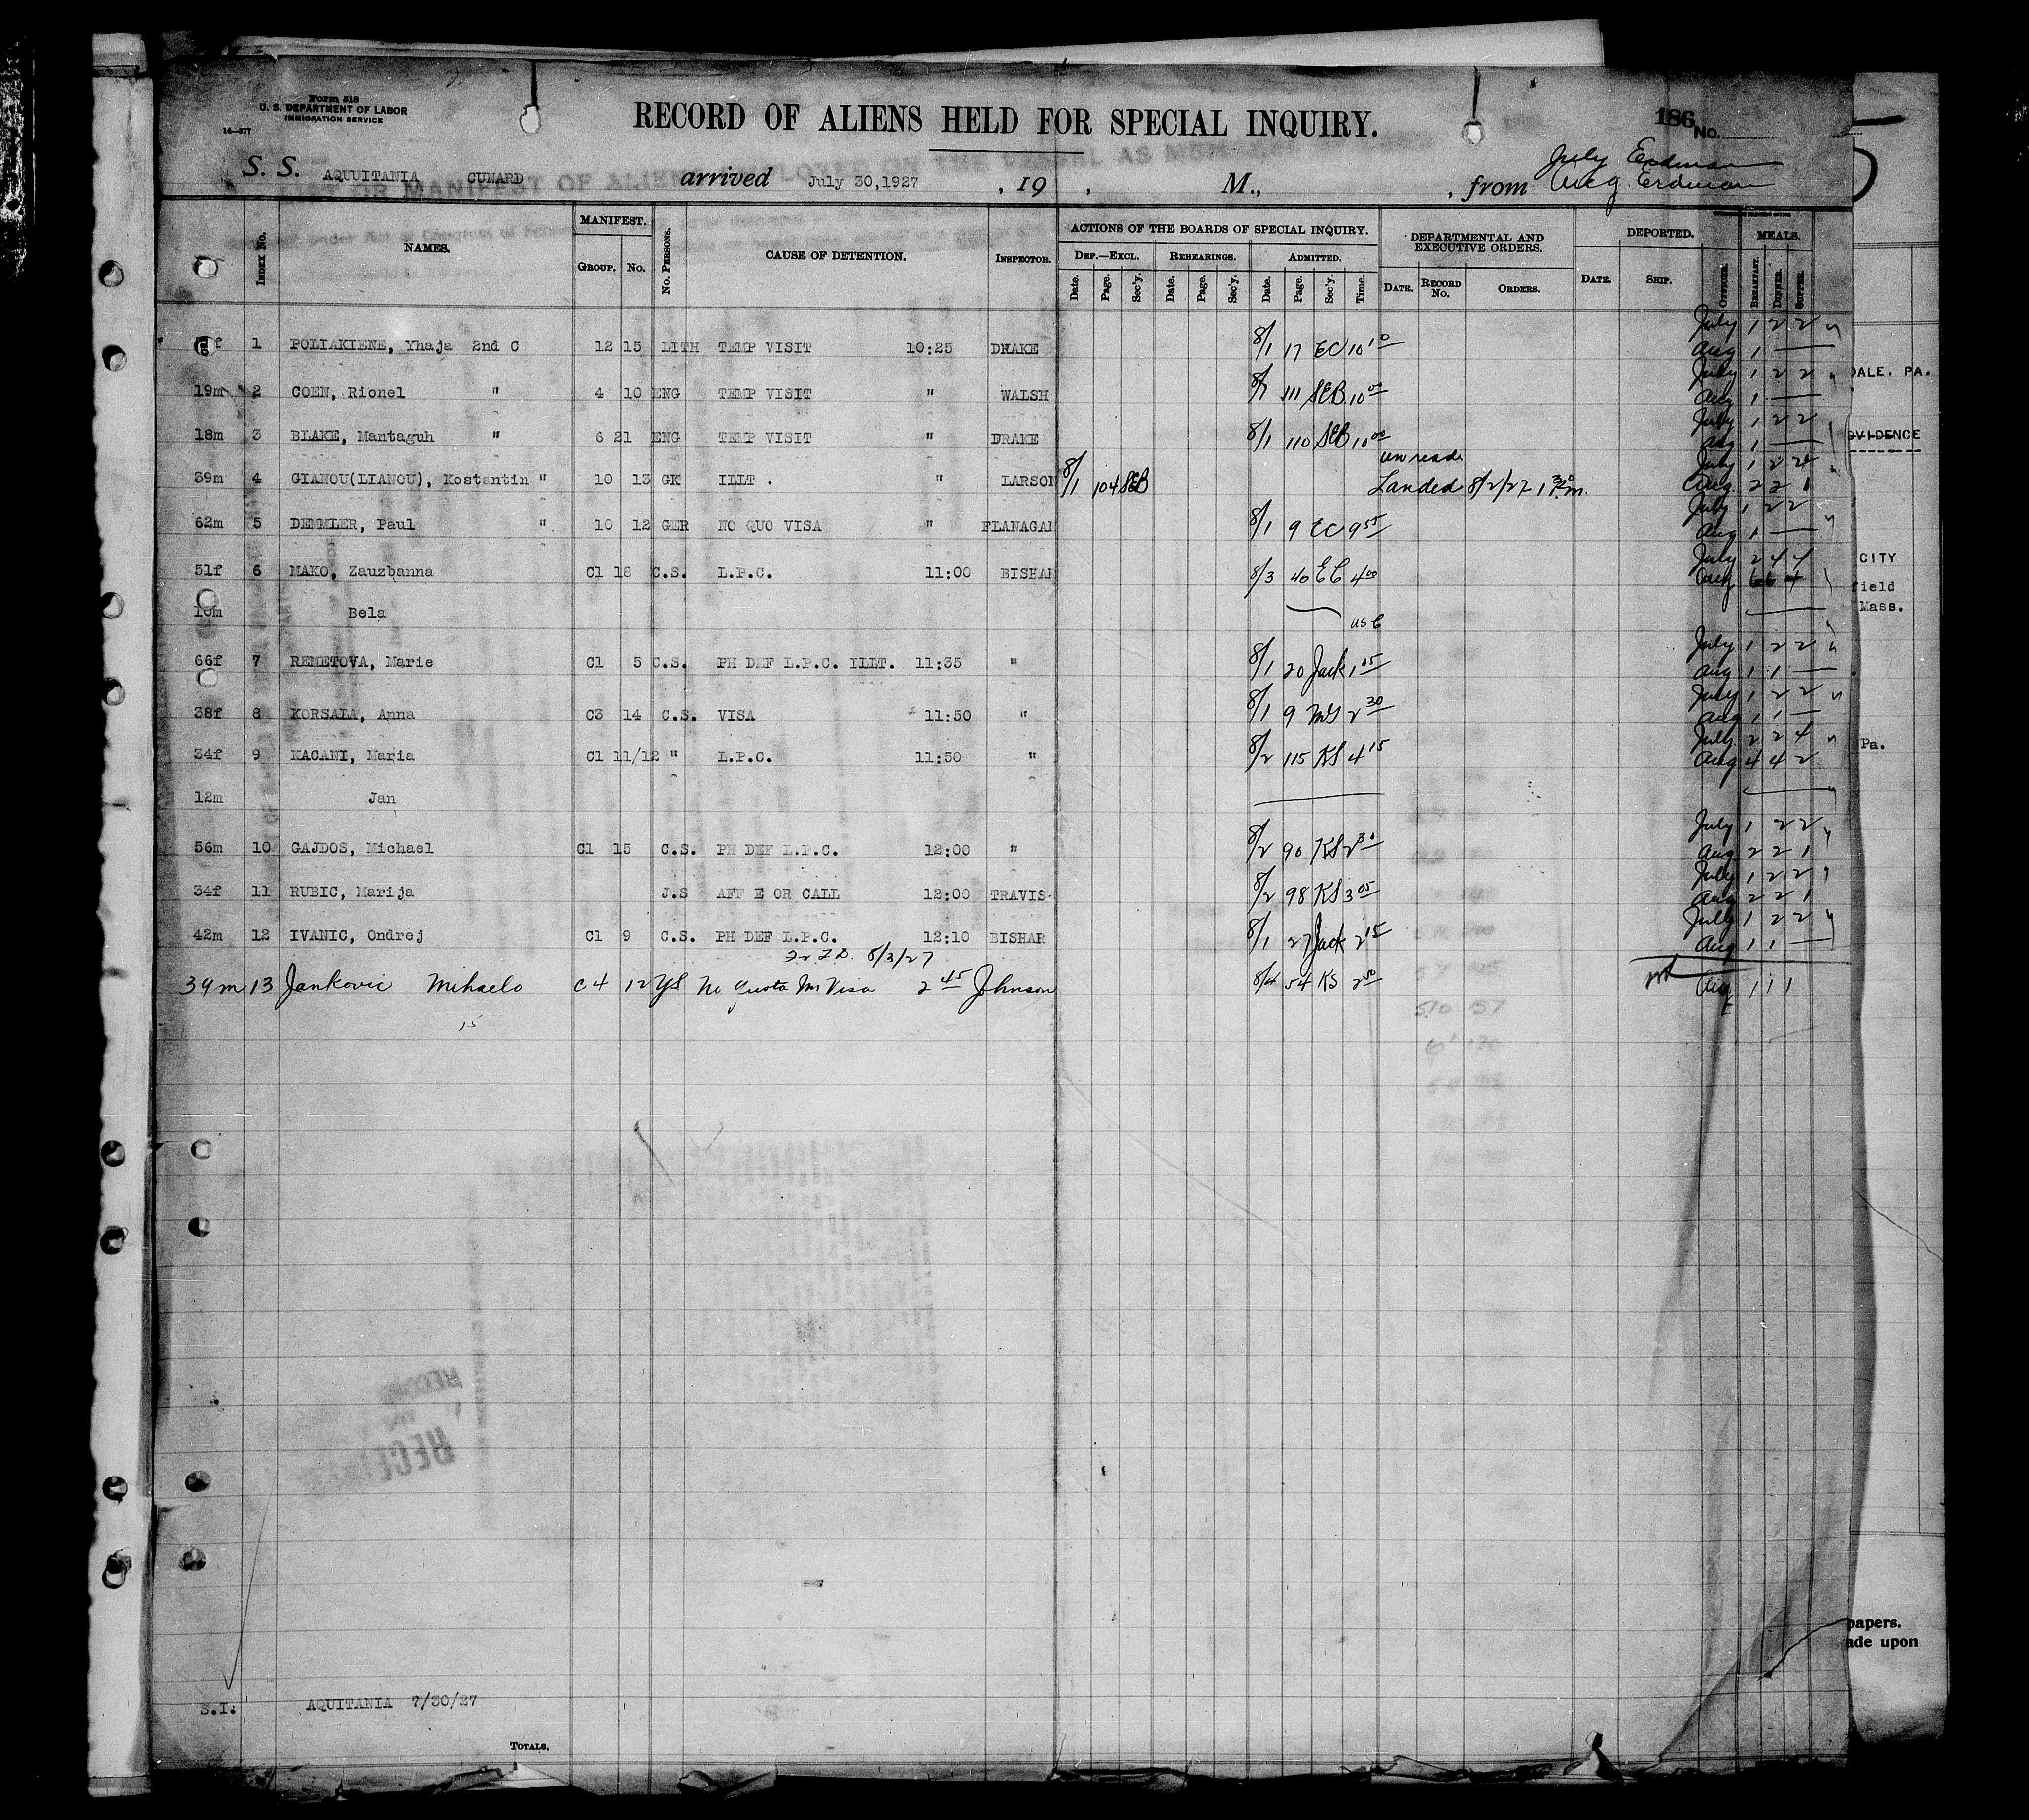 Form 518
U. S. DEPARTMENT OF LABOR
IMMIGRATION SERVICE
14—577
RECORD OF ALIENS HELD FOR SPECIAL INQUIRY.
186 No.
July Erdman
S. S. AQUUITANIA CUNARD arrived July 30,1927 , 19 , M., , from Aug. Erdman
Index No. NAMES. MANIFEST. GROUP. NO. No. PERSONS. CAUSE OF DETENTION. INSPECTOR. ACTIONS OF THE BOARDS OF SPECIAL INQUIRY. DEPARTMENTAL AND EXECUTIVE ORDERS. DEPORTED. MEALS.
DEF.—EXCL. REHEARINGS. ADMITTED.
Date. Page. Sec'y. Date. Page. Sec'y. Date. Page. Sec'y. Time. DATE. RECORD No. ORDERS. DATE. SHIP. OFFICER. BREAKFAST. DINNER. SUPPER.
July 1 2 2
f 1 POLIAKIENE, Yhaja 2nd C 12 15 LITH TEMP VISIT 10:25 DRAKE 8/1 17 EC 10 10
Aug 1 —
July 1 2 2
19m 2 COEN, Rionel " 4 10 ENG TEMP VISIT " WALSH 111 SEB 10 00
Aug 1 —
July 1 2 2
18m 3 BLAKE, Mantaguh " 6 21 ENG TEMP VISIT " DRAKE 8/1 110 SEB 10 00
Aug 1 —
July 1 2 4
39m 4 GIANOU(LIANOU), Kostantin " 10 13 GK ILLT . " LARSON 8/1 104 SEB Landed 8/2/27 1 30 P.m.
Aug. 2 2 1
July 1 2 2
62m 5 DEMMLER, Paul " 10 12 GER NO QUO VISA " FLANAGAN 8/1 9 EC 9 55
Aug 1 —
July 2 4 4
51f 6 MAKO, Zauzbanna C1 18 C.S. L.P.C. 11:00 BISHAR 8/3 40 EC 4 00
Aug 6 6 4
10m Bela
US C
July 1 2 2
66f 7 REMETOVA, Marie C1 5 C.S. PH DEF L.P.C. ILLT. 11:35 " 8/1 20 Jack 1 05
Aug 1 1 —
July 1 2 2
38f 8 KORSALA, Anna C3 14 C.S. VISA 11:50 " 8/1 9 2 30
Aug 1 1 —
July 2 2 4
34f 9 KACANI, Maria C1 11/12 " L.P.C. 11:50 " 8/2 115 KS 4 15
Aug 4 4 2
12m Jan
July 1 2 2
56m 10 GAJDOS, Michael C1 15 C.S. PH DEF L.P.C. 12:00 " 8/2 90 KS 2 30
Aug 2 2 1
July 1 2 2
34f 11 RUBIC, Marija J.S AFF E OR CALL 12:00 TRAVIS 8/2 98 KS 3 05
Aug 2 2 1
July 1 2 2
42m 12 IVANIC, Ondrej C1 9 C.S. PH DEF L.P.C. 12:10 BISHAR 8/1 27 Jack 2 15
Aug 1 1 —
8/3/27
39m 13 Jankovic Mihaelo C4 12 YS No Quota Visa 2 45 Johnson 8/4 54 KS
Aug 1 1 1
15
DALE. PA.
OVIDENCE
CITY
field
Mass.
Pa.
papers.
ade upon
S.I. AQUITANIA 7/30/27
TOTALS,